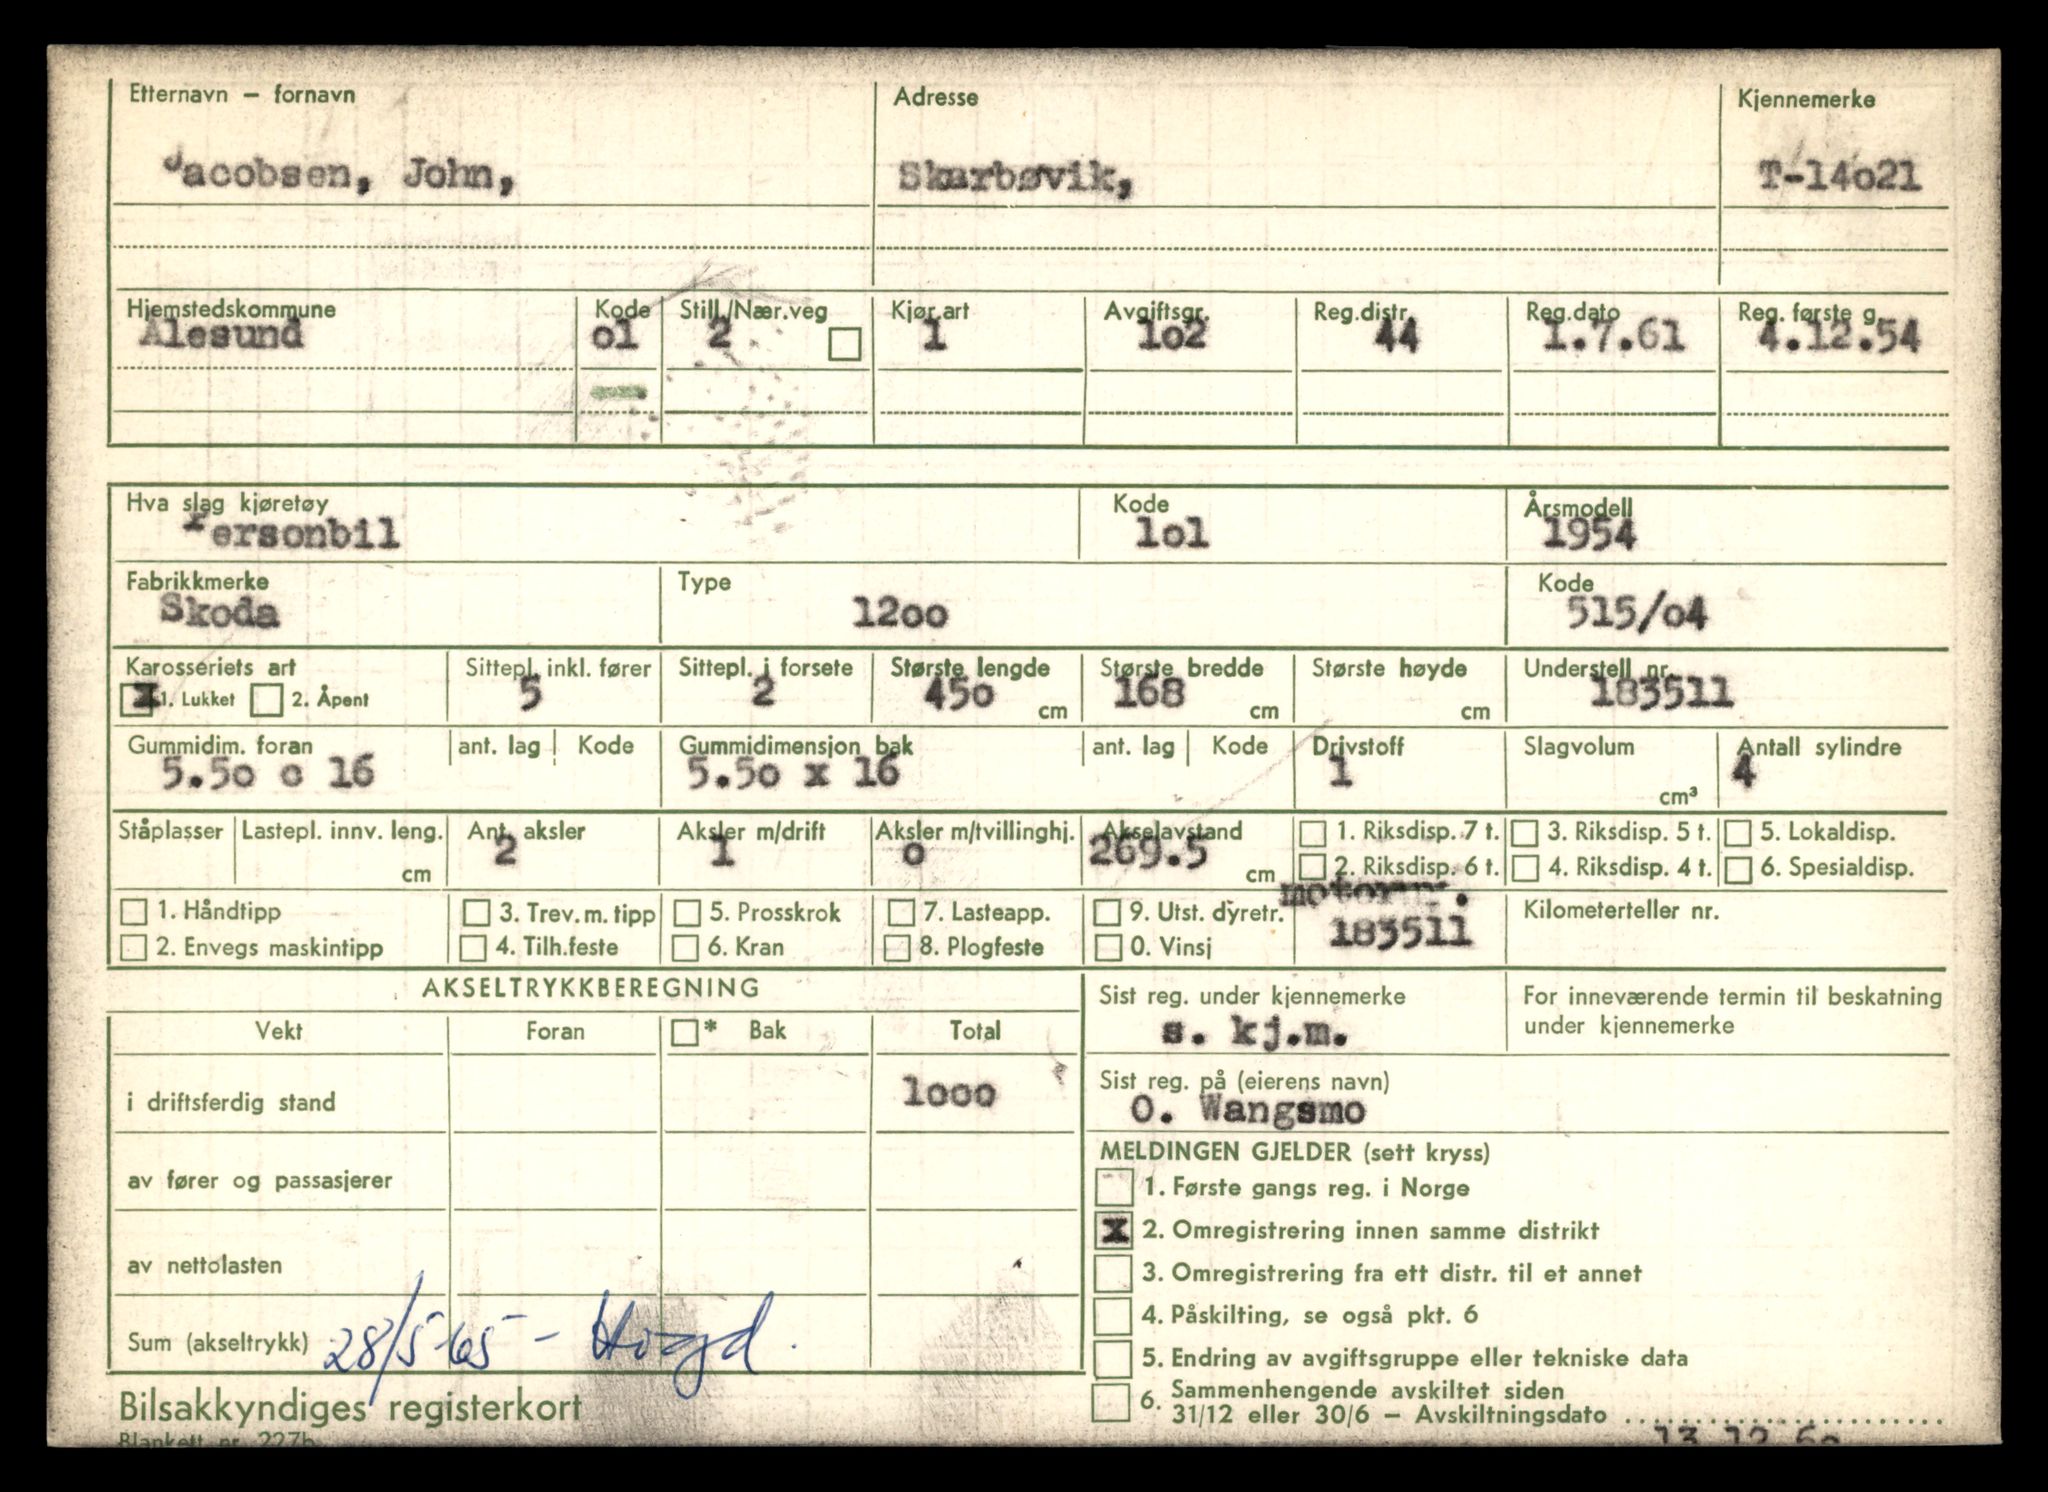 Etternavn – fornavn Adresse Kjennemerke
Jacobsen, John, Skarbøvik, T-14o21
Hjemstedskommune Kode Still./Nær.veg Kjør.art Avgiftsgr. Reg.distr. Reg.dato Reg. første g.
Ålesund o1 2 1 1o2 44 1.7.61 4.12.54
Hva slag kjøretøy Kode Årsmodell
Personbil 1o1 1954
Fabrikkmerke Type Kode
Skoda 12oo 515/o4
Karosseriets art Sittepl. inkl. fører Sittepl. i forsete Største lengde Største bredde Største høyde Understell nr.
X 1. Lukket 2. Åpent 5 2 45o cm 168 cm cm 183511
Gummidim. foran ant. lag Kode Gummidimensjon bak ant. lag Kode Drivstoff Slagvolum Antall sylindre
5.5o o 16 5.5o x 16 1 cm³ 4
Ståplasser Lastepl. innv. leng. Ant. aksler Aksler m/drift Aksler m/tvillinghj. Akselavstand 1. Riksdisp. 7 t. 3. Riksdisp. 5 t. 5. Lokaldisp.
cm 2 1 o 269.5 cm 2. Riksdisp. 6 t. 4. Riksdisp. 4 t. 6. Spesialdisp.
motornr.
1. Håndtipp 3. Trev. m. tipp 5. Prosskrok 7. Lasteapp. 9. Utst. dyretr. Kilometerteller nr.
2. Envegs maskintipp 4. Tilh.feste 6. Kran 8. Plogfeste 0. Vinsj 183511
AKSELTRYKKBEREGNING Sist reg. under kjennemerke For inneværende termin til beskatning
under kjennemerke
Vekt Foran * Bak Total s. kj.m.
i driftsferdig stand 1ooo
Sist reg. på (eierens navn)
O. Wangsmo
MELDINGEN GJELDER (sett kryss)
av fører og passasjerer
1. Første gangs reg. i Norge
X 2. Omregistrering innen samme distrikt
av nettolasten
3. Omregistrering fra ett distr. til et annet
4. Påskilting, se også pkt. 6
Sum (akseltrykk) 28/5-65 –
5. Endring av avgiftsgruppe eller tekniske data
6. Sammenhengende avskiltet siden
31/12 eller 30/6 – Avskiltningsdato
Bilsakkyndiges registerkort
Blankett nr. 227b
13.12.6o